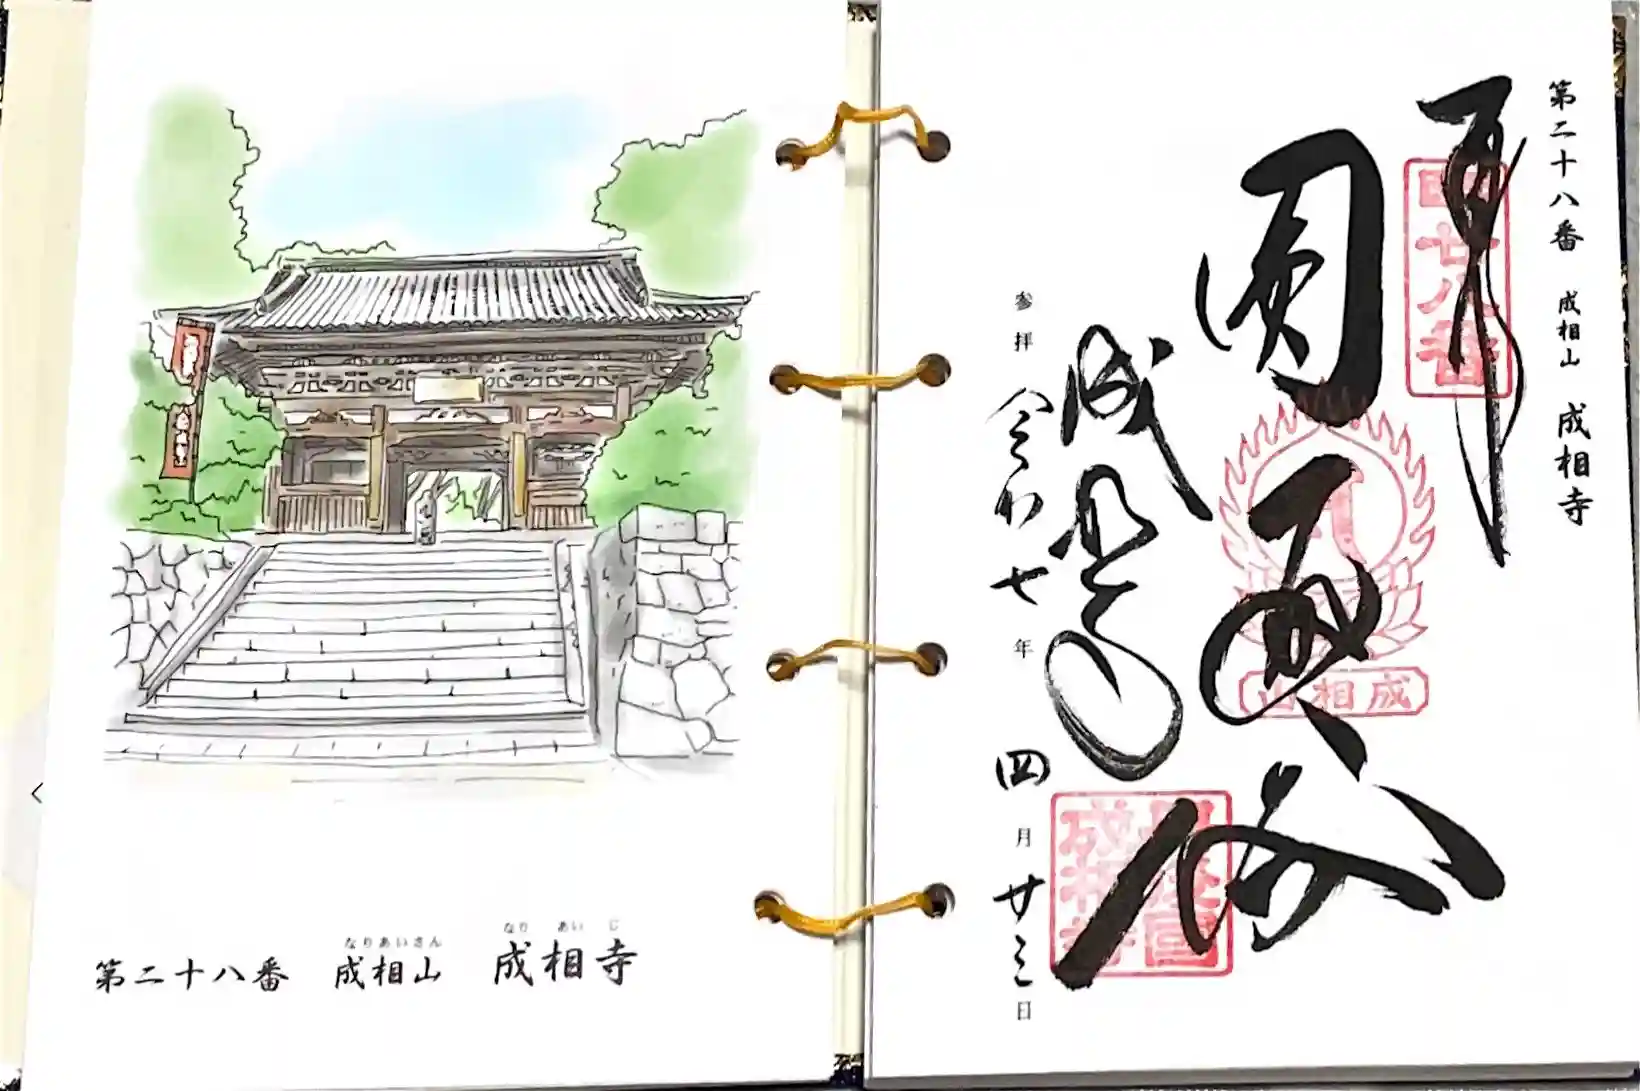 なりあいさん
なりあいじ
第二十八番 成相山 成相寺
第二十八番 成相山 成相寺
奉拝
廿八番
圓通殿
成相山
成相寺
参拝 令和七年四月廿三日
成相寺